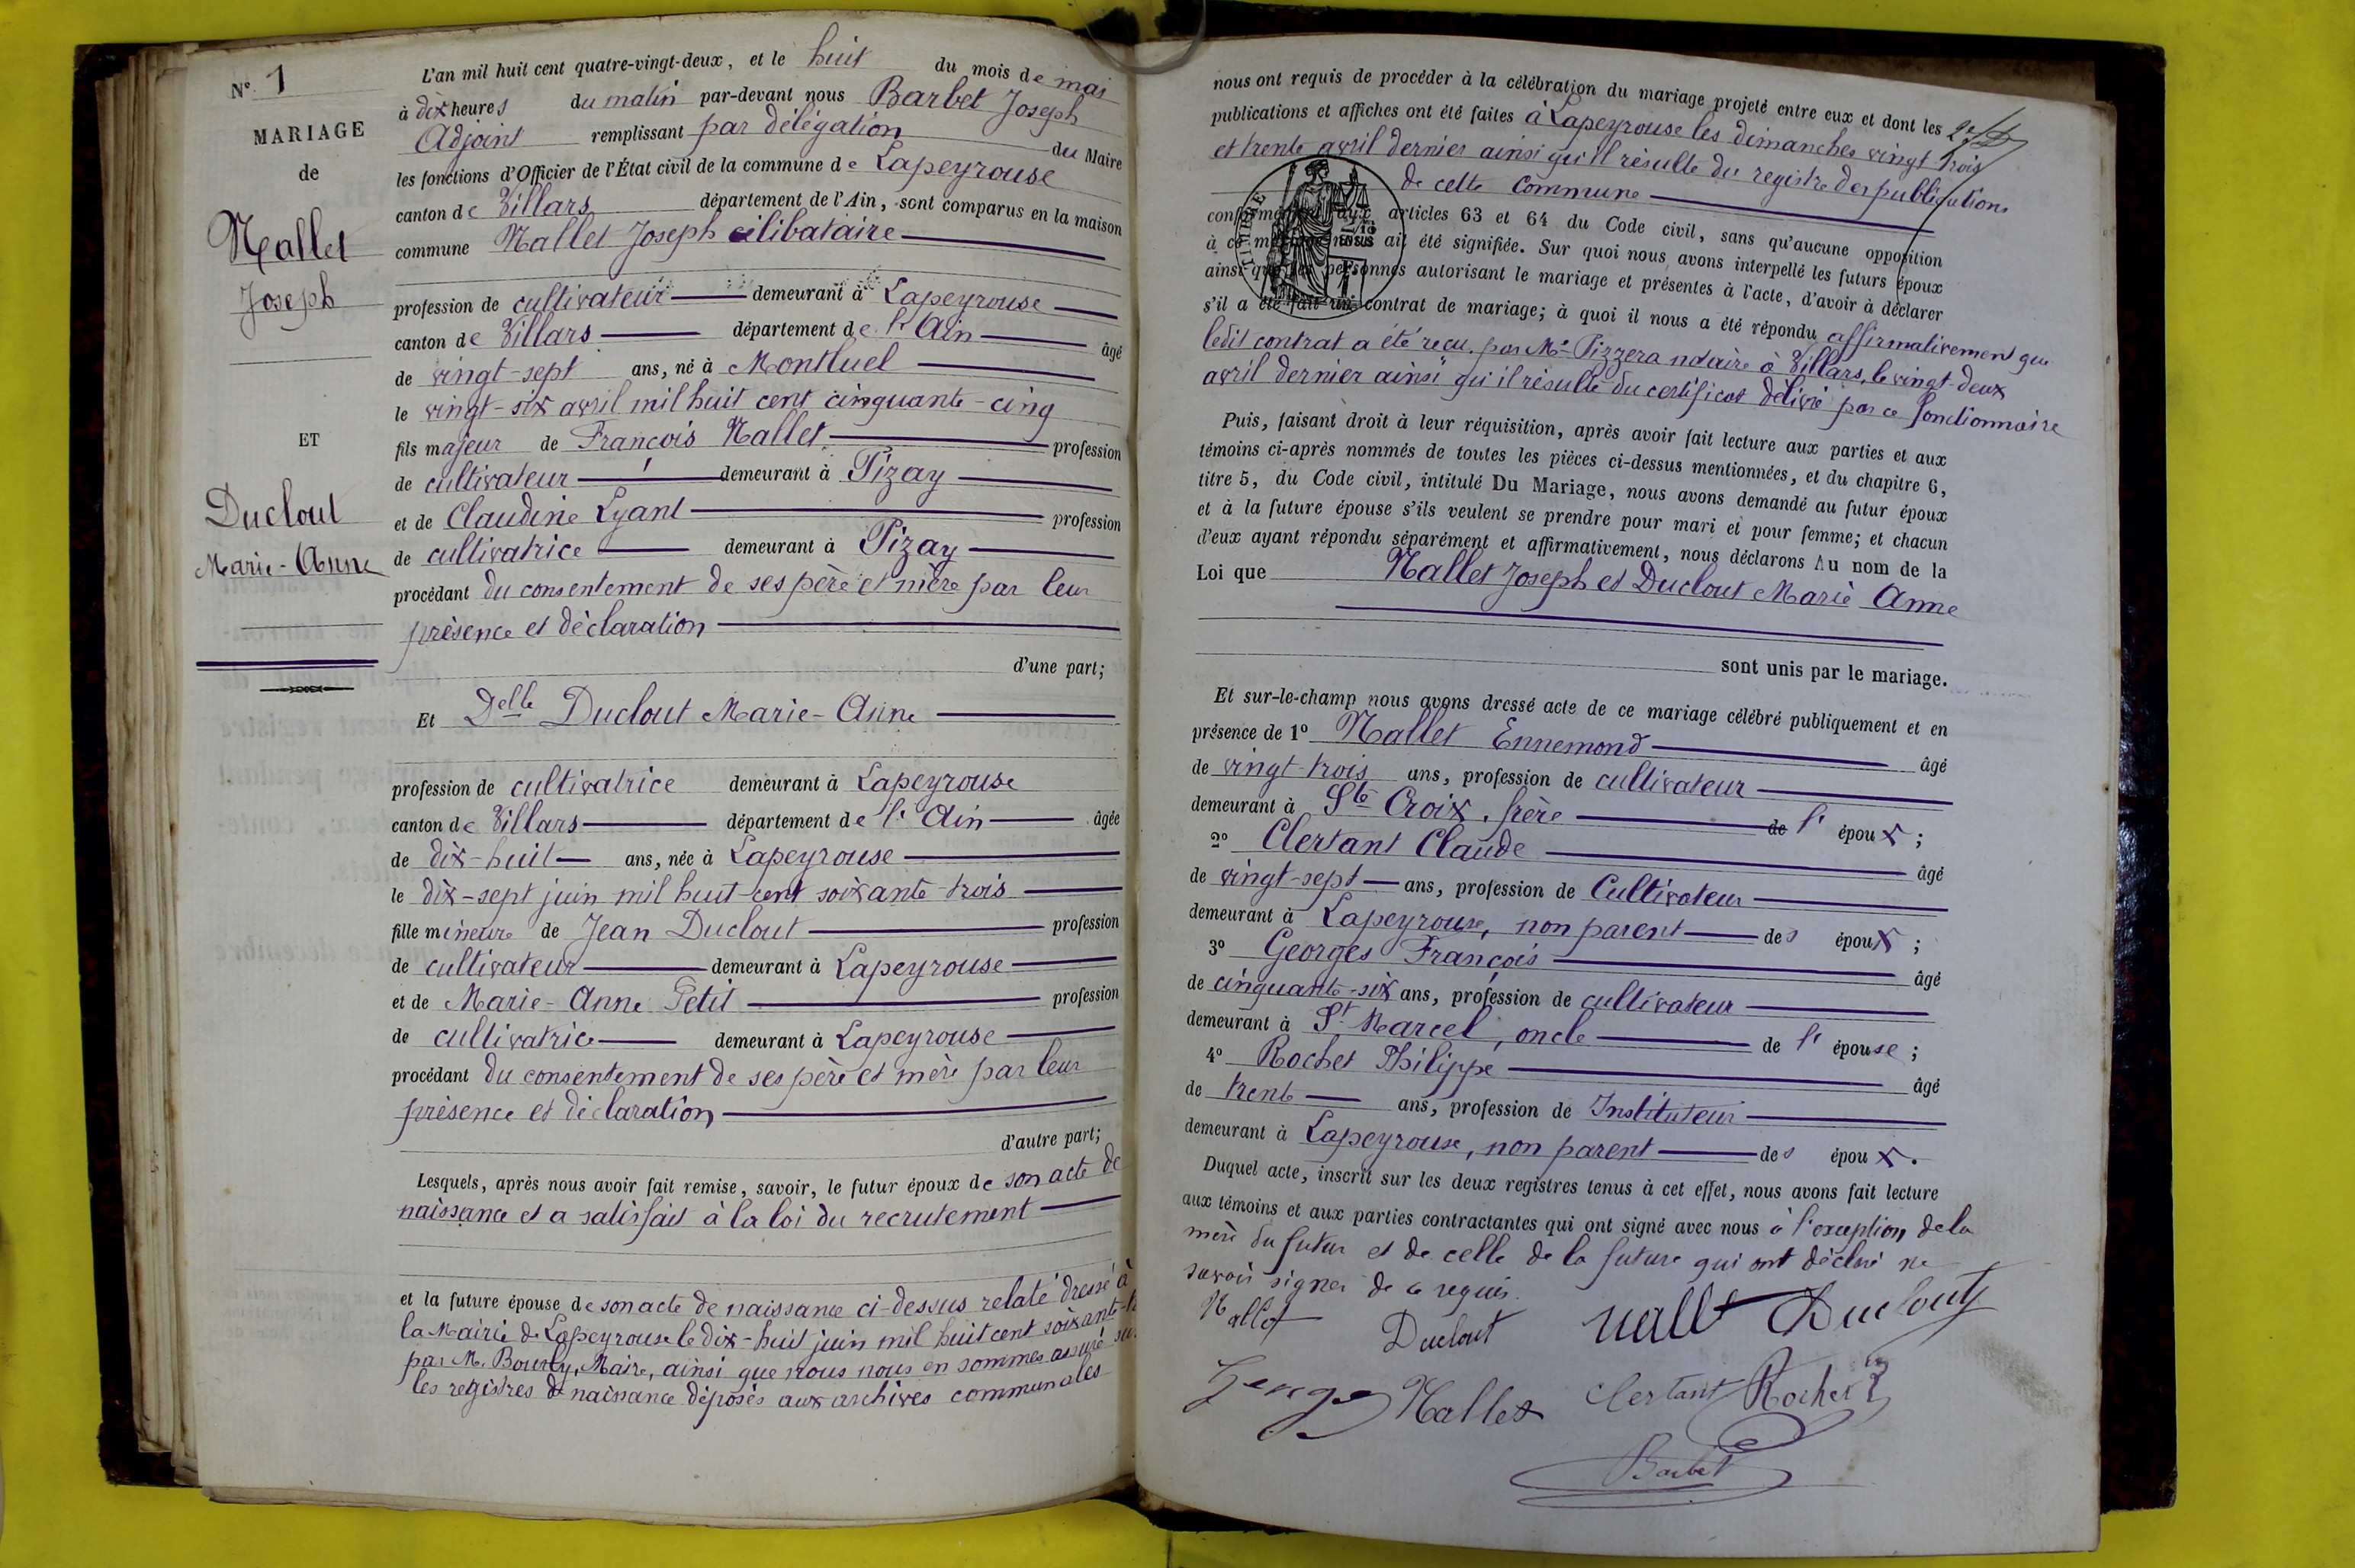 N° 1
MARIAGE
de
Nallet
Joseph
ET
Duclout
Marie-Anne
L'an mil huit cent quatre-vingt-deux, et le huit du mois de mai
à dix heures du matin par-devant nous Barbet Joseph
Adjoint remplissant par délégation du Maire
les fonctions d'Officier de l'État civil de la commune de Lapeyrouse
canton de Villars département de l'Ain, sont comparus en la maison
commune Nallet Joseph célibataire
profession de cultivateur demeurant à Lapeyrouse
canton de Villars département de l'Ain âgé
de vingt-sept ans, né à Montluel
le vingt-six avril mil huit cent cinquante-cinq
fils majeur de François Nallet profession
de cultivateur demeurant à Pizay
et de Claudine Lyant profession
de cultivatrice demeurant à Pizay
procédant du consentement de ses père et mère par leur
présence et déclaration
d'une part;
Et Delle Duclout Marie-Anne
profession de cultivatrice demeurant à Lapeyrouse
canton de Villars département de l'Ain âgée
de dix-huit ans, née à Lapeyrouse
le dix-sept juin mil huit cent soixante trois
fille mineure de Jean Duclout profession
de cultivateur demeurant à Lapeyrouse
et de Marie-Anne Petit profession
de cultivatrice demeurant à Lapeyrouse
procédant du consentement de ses père et mère par leur
présence et déclaration
d'autre part;
Lesquels, après nous avoir fait remise, savoir, le futur époux de son acte de
naissance et a satisfait à la loi du recrutement
et la future épouse de son acte de naissance ci-dessus relaté dressé à
la Mairie de Lapeyrouse le dix-huit juin mil huit cent soixante-
par M. Bourly, Maire, ainsi que nous nous en sommes assuré sur
les registres de naissance déposés aux archives communales
nous ont requis de procéder à la célébration du mariage projeté entre eux et dont les
publications et affiches ont été faites à Lapeyrouse les dimanches vingt trois
et trente avril dernier ainsi qu'il résulte du registre des publications
de cette commune
TIMBRE
conformément aux articles 63 et 64 du Code civil, sans qu'aucune opposition
à ce mariage nous ait été signifiée. Sur quoi nous avons interpellé les futurs époux
ainsi que les personnes autorisant le mariage et présentes à l'acte, d'avoir à déclarer
s'il a été fait un contrat de mariage; à quoi il nous a été répondu affirmativement que
ledit contrat a été reçu par Me Pizzera notaire à Villars, le vingt-deux
avril dernier ainsi qu'il résulte du certificat délivré par ce fonctionnaire
Puis, faisant droit à leur réquisition, après avoir fait lecture aux parties et aux
témoins ci-après nommés de toutes les pièces ci-dessus mentionnées, et du chapitre 6,
titre 5, du Code civil, intitulé Du Mariage, nous avons demandé au futur époux
et à la future épouse s'ils veulent se prendre pour mari et pour femme; et chacun
d'eux ayant répondu séparément et affirmativement, nous déclarons Au nom de la
Loi que Nallet Joseph et Duclout Marie Anne
sont unis par le mariage.
Et sur-le-champ nous avons dressé acte de ce mariage célébré publiquement et en
présence de 1° Nallet Ennemond âgé
de vingt-trois ans, profession de cultivateur
demeurant à Ste Croix, frère de l' époux;
2° Clertant Claude âgé
de vingt-sept ans, profession de Cultivateur
demeurant à Lapeyrouse, non parent des époux;
3° Georges François âgé
de cinquante-six ans, profession de cultivateur
demeurant à St Marcel, oncle de l' épouse;
4° Rochet Philippe âgé
de trente ans, profession de Instituteur
demeurant à Lapeyrouse, non parent des époux.
Duquel acte, inscrit sur les deux registres tenus à cet effet, nous avons fait lecture
aux témoins et aux parties contractantes qui ont signé avec nous à l'exception de la
mère du futur et de celle de la future qui ont déclaré ne
savoir signer de ce requis.
Nallet Duclout Nallet Duclout
George Nallet Clertant Rochet
Barbet